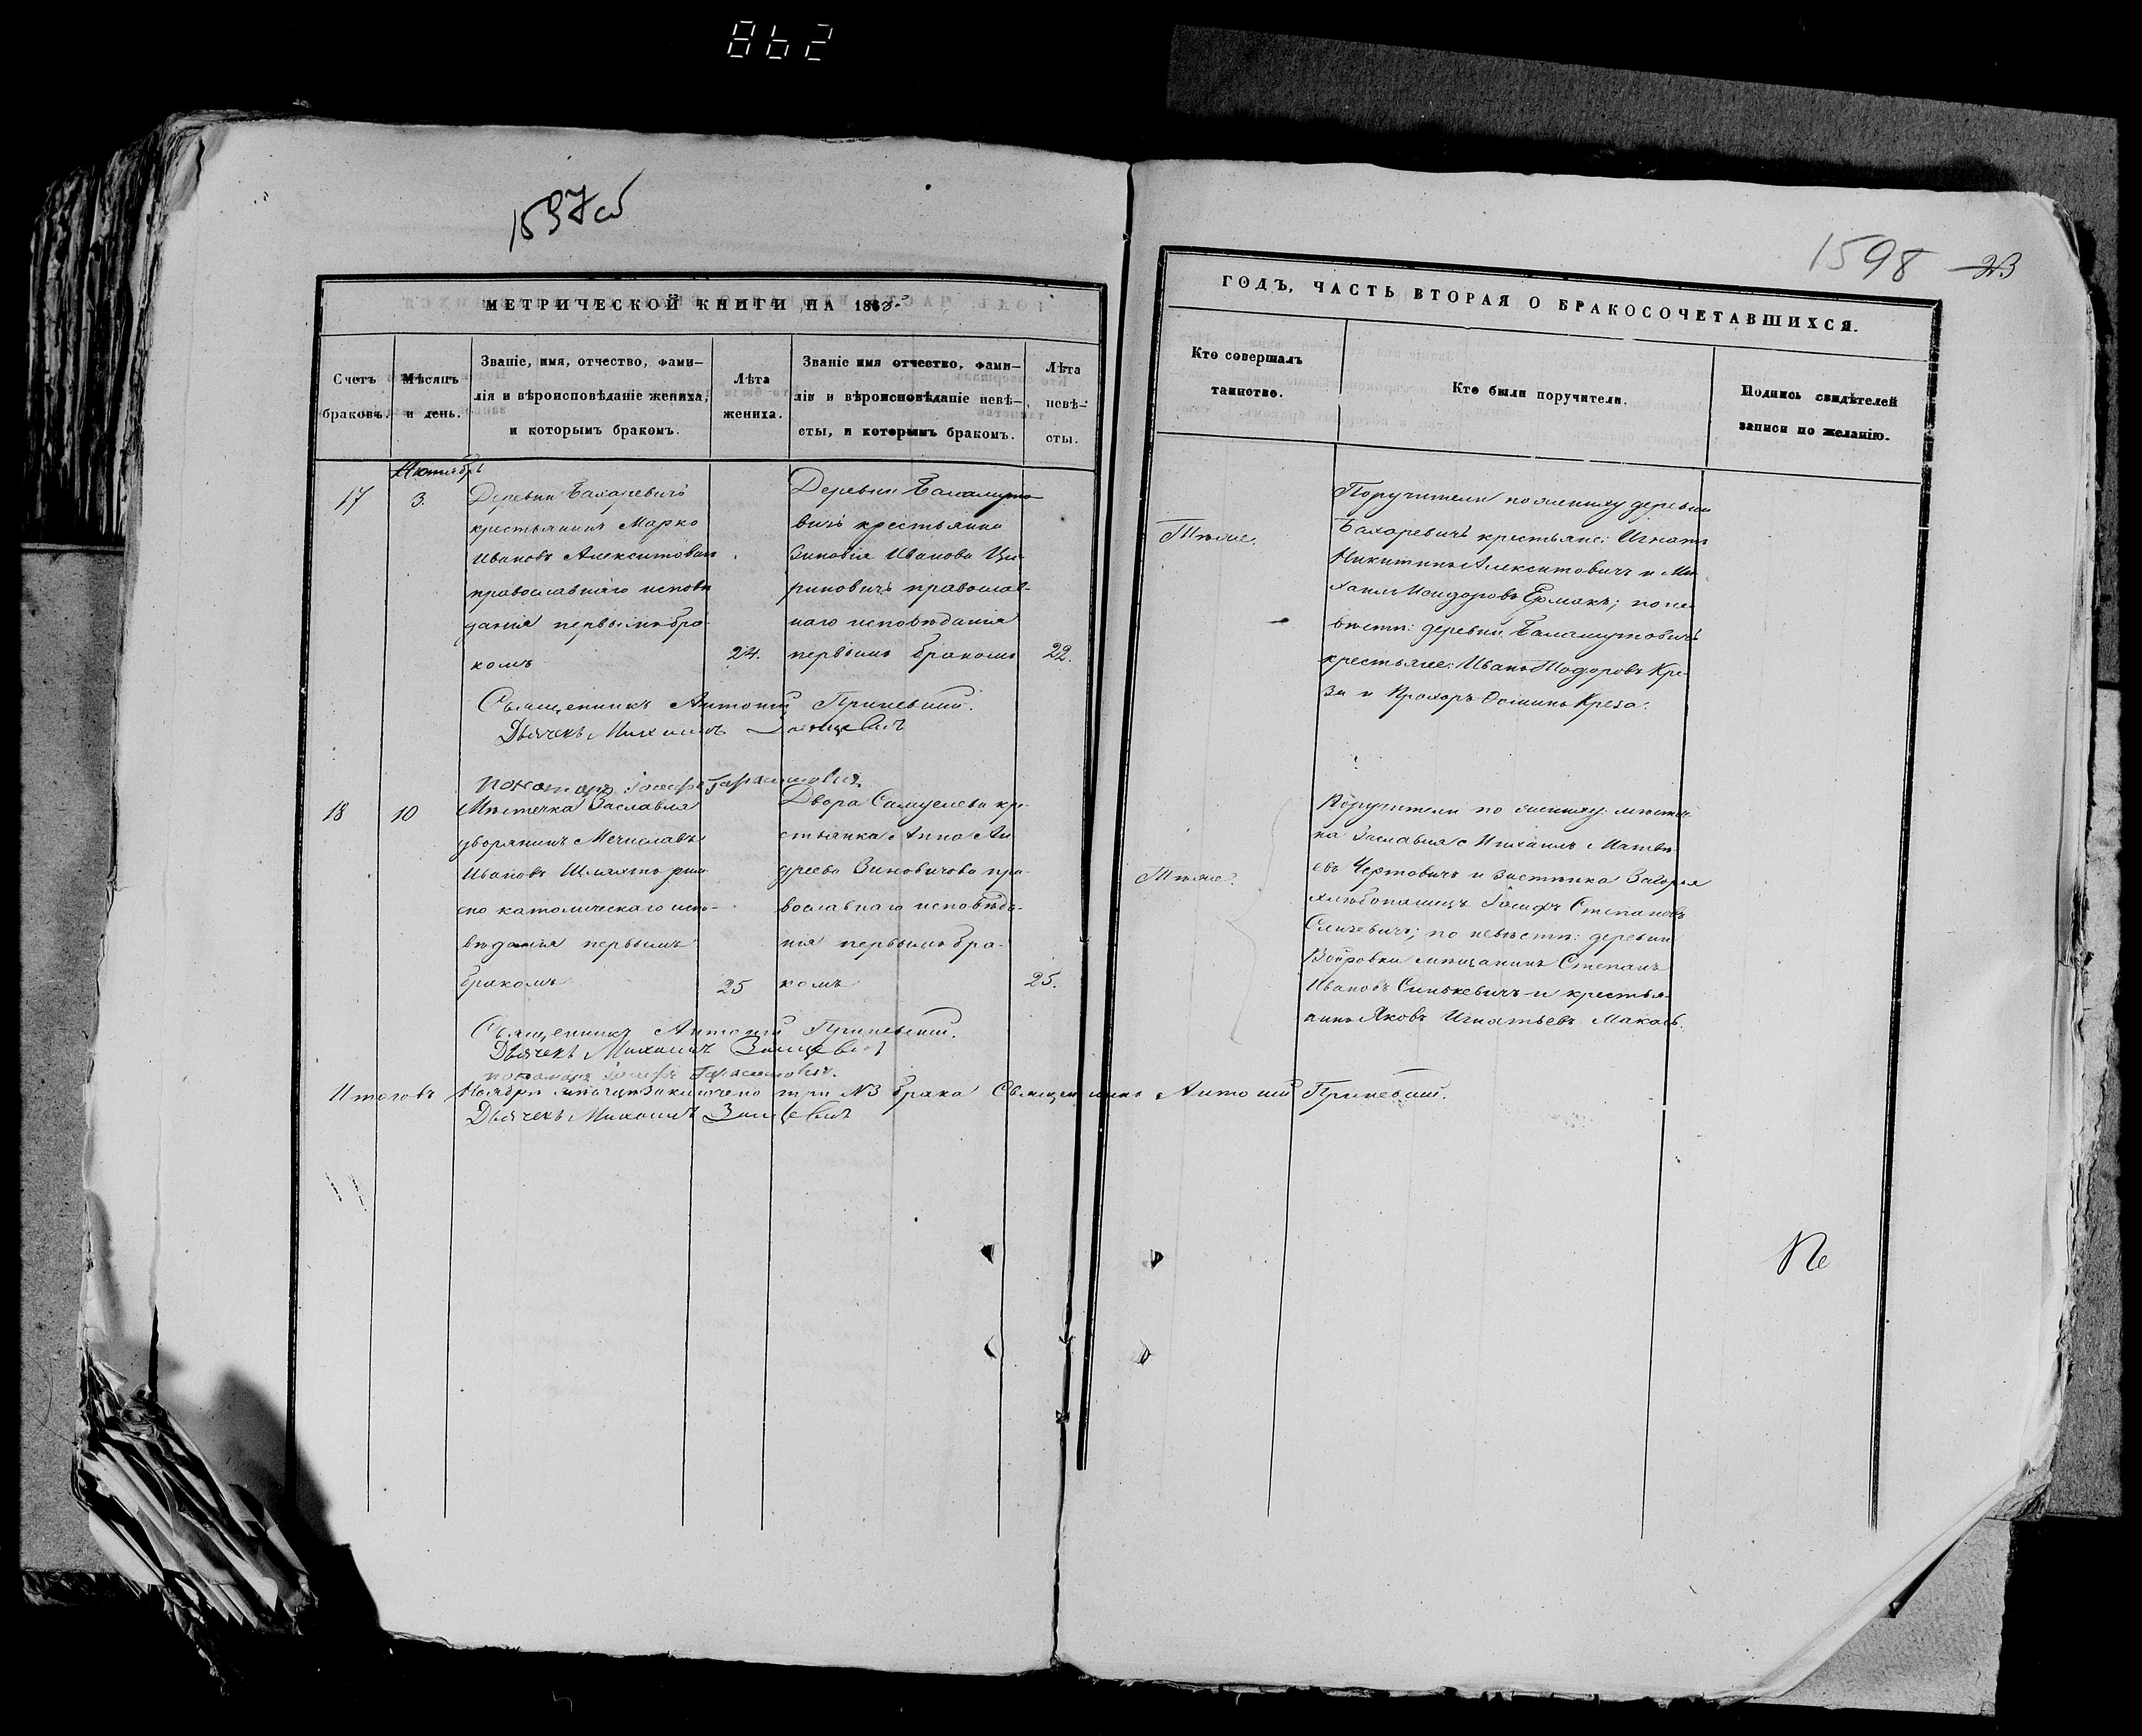 862
1598
23
МЕТРИЧЕСКОЙ КНИГИ НА 186
ГОДЪ, ЧАСТЬ ВТОРАЯ О БРАКОСОЧЕТАВШИХСЯ.
Счетъ браковъ.
Мѣсяцъ и день.
Званіе, имя, отчество, фами-
лія и вѣроисповѣданіе жениха,
и которымъ бракомъ.
Лѣта
жениха.
Званіе имя отчество, фами-
лія и вѣроисповѣданіе невѣ-
сты, и которымъ бракомъ.
Лѣта
невѣ-
сты.
Кто совершалъ
таинство.
Кто были поручители.
Подпись свидѣтелей
записи по желанію.
17
3.
Деревни
крестьянинъ Марко
Ивановъ Алекситовичъ
православнаго исповѣ
данія первымъ бра-
комъ
24.
Деревни Баламуто
вичъ крестьянка
Зиновія Иванова Ци-
риновичъ православ-
наго исповѣданія
первымъ бракомъ
22.
Тѣже.
Поручители по жениху деревни
крестьяне: Игнатъ
Никитинъ Алекситовичъ и Ми
хаилъ Исидоровъ Ермакъ; по не-
вѣстѣ: деревни Баламутовичъ
крестьяне: Иванъ Тодоровъ Кре-
за и Прохоръ Осминъ Креза.
Священникъ Антоній
Дьячекъ Михаилъ
18
10
Мѣстечка Заславля
дворянинъ Мечиславъ
Ивановъ Шляхта рим
ско католическаго испо-
вѣданія первымъ
бракомъ
25
Двора Самуелева кре-
стьянка Анна Ан
дреева Зиновичова пра-
вославнаго исповѣда-
нія первымъ бра-
комъ
25.
Тѣже.
Поручители по жениху: мѣстеч-
ка Заславля Михаилъ Матвѣ
евъ Чертовичъ и застѣнка Загорья
хлѣбопашецъ Іосифъ Степановъ
по невѣстѣ: деревни
мѣщанинъ Степанъ
Ивановъ Синкевичъ и крестья-
нинъ Яковъ Игнатьевъ Макась.
Священникъ Антоній
Дьячекъ Михаилъ
Итого въ Ноябрѣ мѣсяцѣ заключено три №3 брака Священникъ Антоній
Дьячекъ Михаилъ